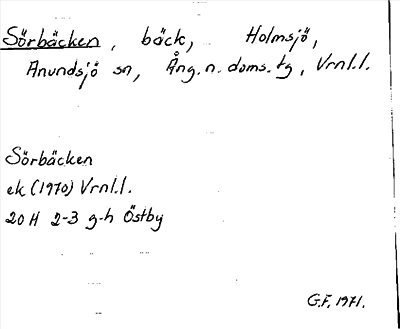 Sörbäcken, bäck, Holmsjö,
Anundsjö sn, Ång. n. doms. tg, Vrnl.l.
Sörbäcken
ek (1970) Vrnl.l.
20 H 2-3 g-h Östby
G.F. 1971.